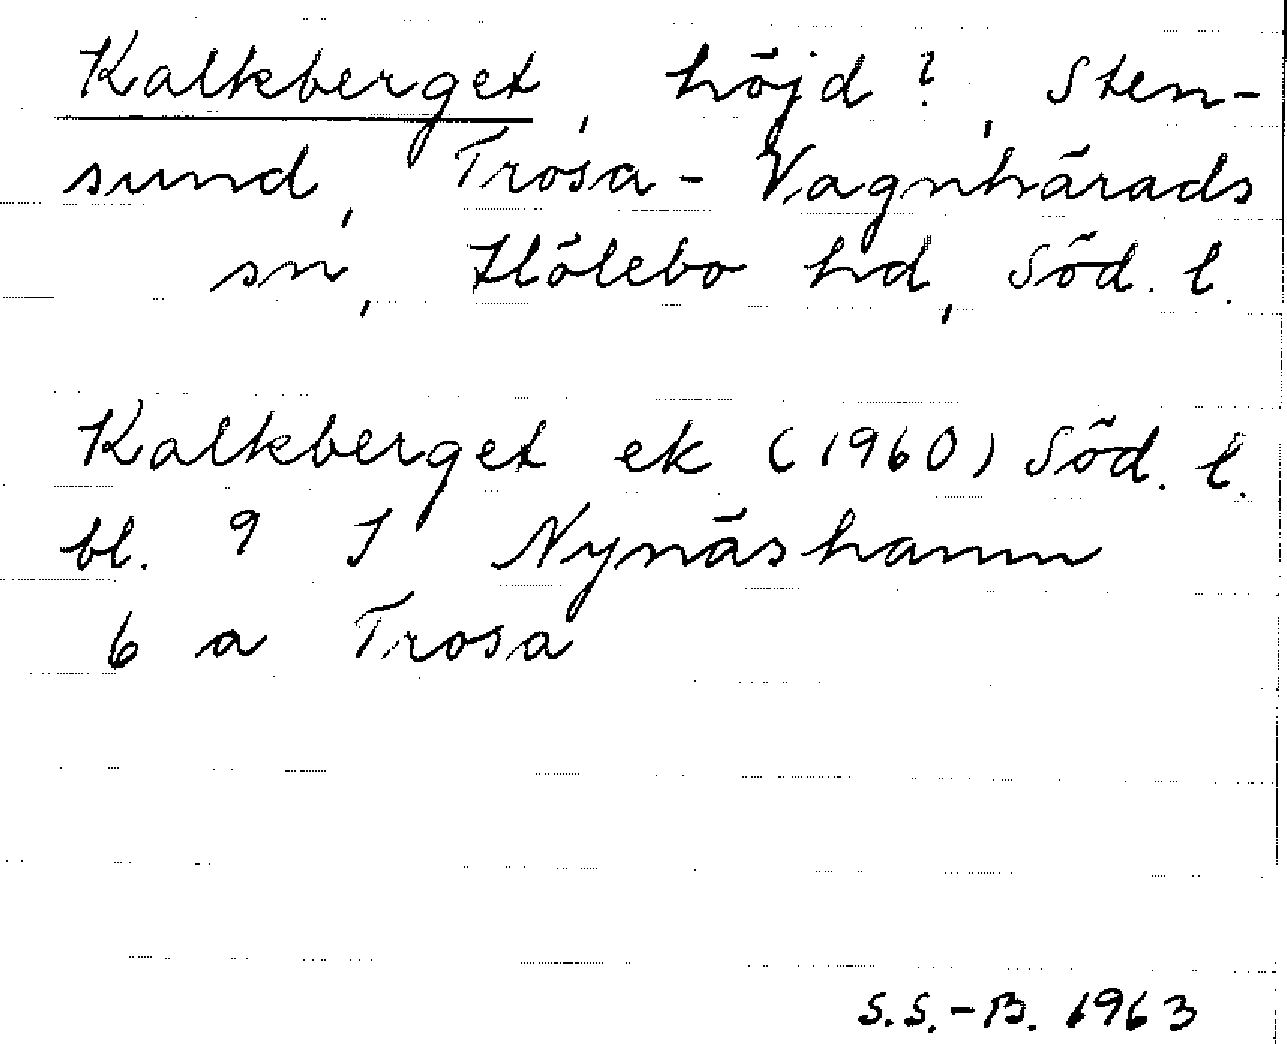 Kalkberget, höjd?, Sten-
sund, Trosa-Vagnhärads
sn, Hölebo hd, Söd. l.
Kalkberget ek (1960) Söd. l.
bl. 9 I Nynäshamn
6 a Trosa
S.S.-B. 1963